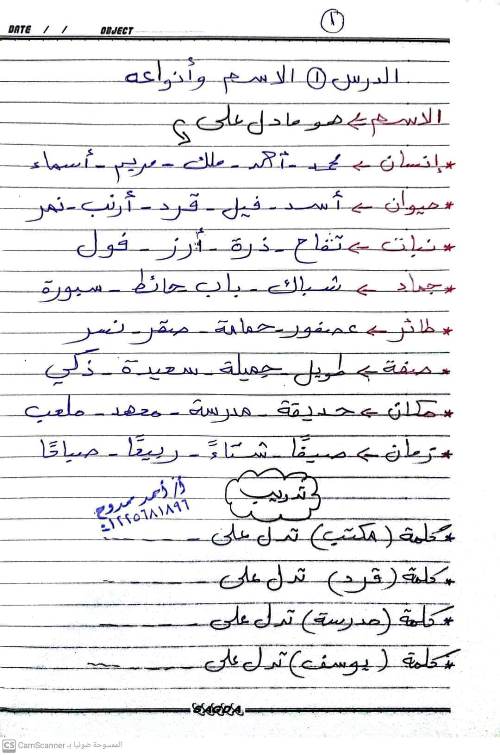 ١
DATE / / OBJECT
الدرس ① الاسم وأنواعه
الاسم ← هو ما دل على
* إنسان ← محمد - أحمد - ملك - مريم - أسماء
* حيوان ← أسد - فيل - قرد - أرنب - نمر
* نبات ← تفاح - ذرة - أرز - فول
* جماد ← شباك - باب حائط - سبورة
* طائر ← عصفور - حمامة - صقر - نسر
* صفة ← طويل - جميلة - سعيدة - ذكي
* مكان ← حديقة - مدرسة - معهد - ملعب
* زمان ← صيفًا - شتاءً - ربيعًا - صباحًا
تدريب
أ/ أحمد ممدوح
* كلمة (مكتب) تدل على ------
* كلمة (قرد) تدل على ------
* كلمة (مدرسة) تدل على ------
* كلمة (يوسف) تدل على ------
CS CamScanner الممسوحة ضوئيا بـ